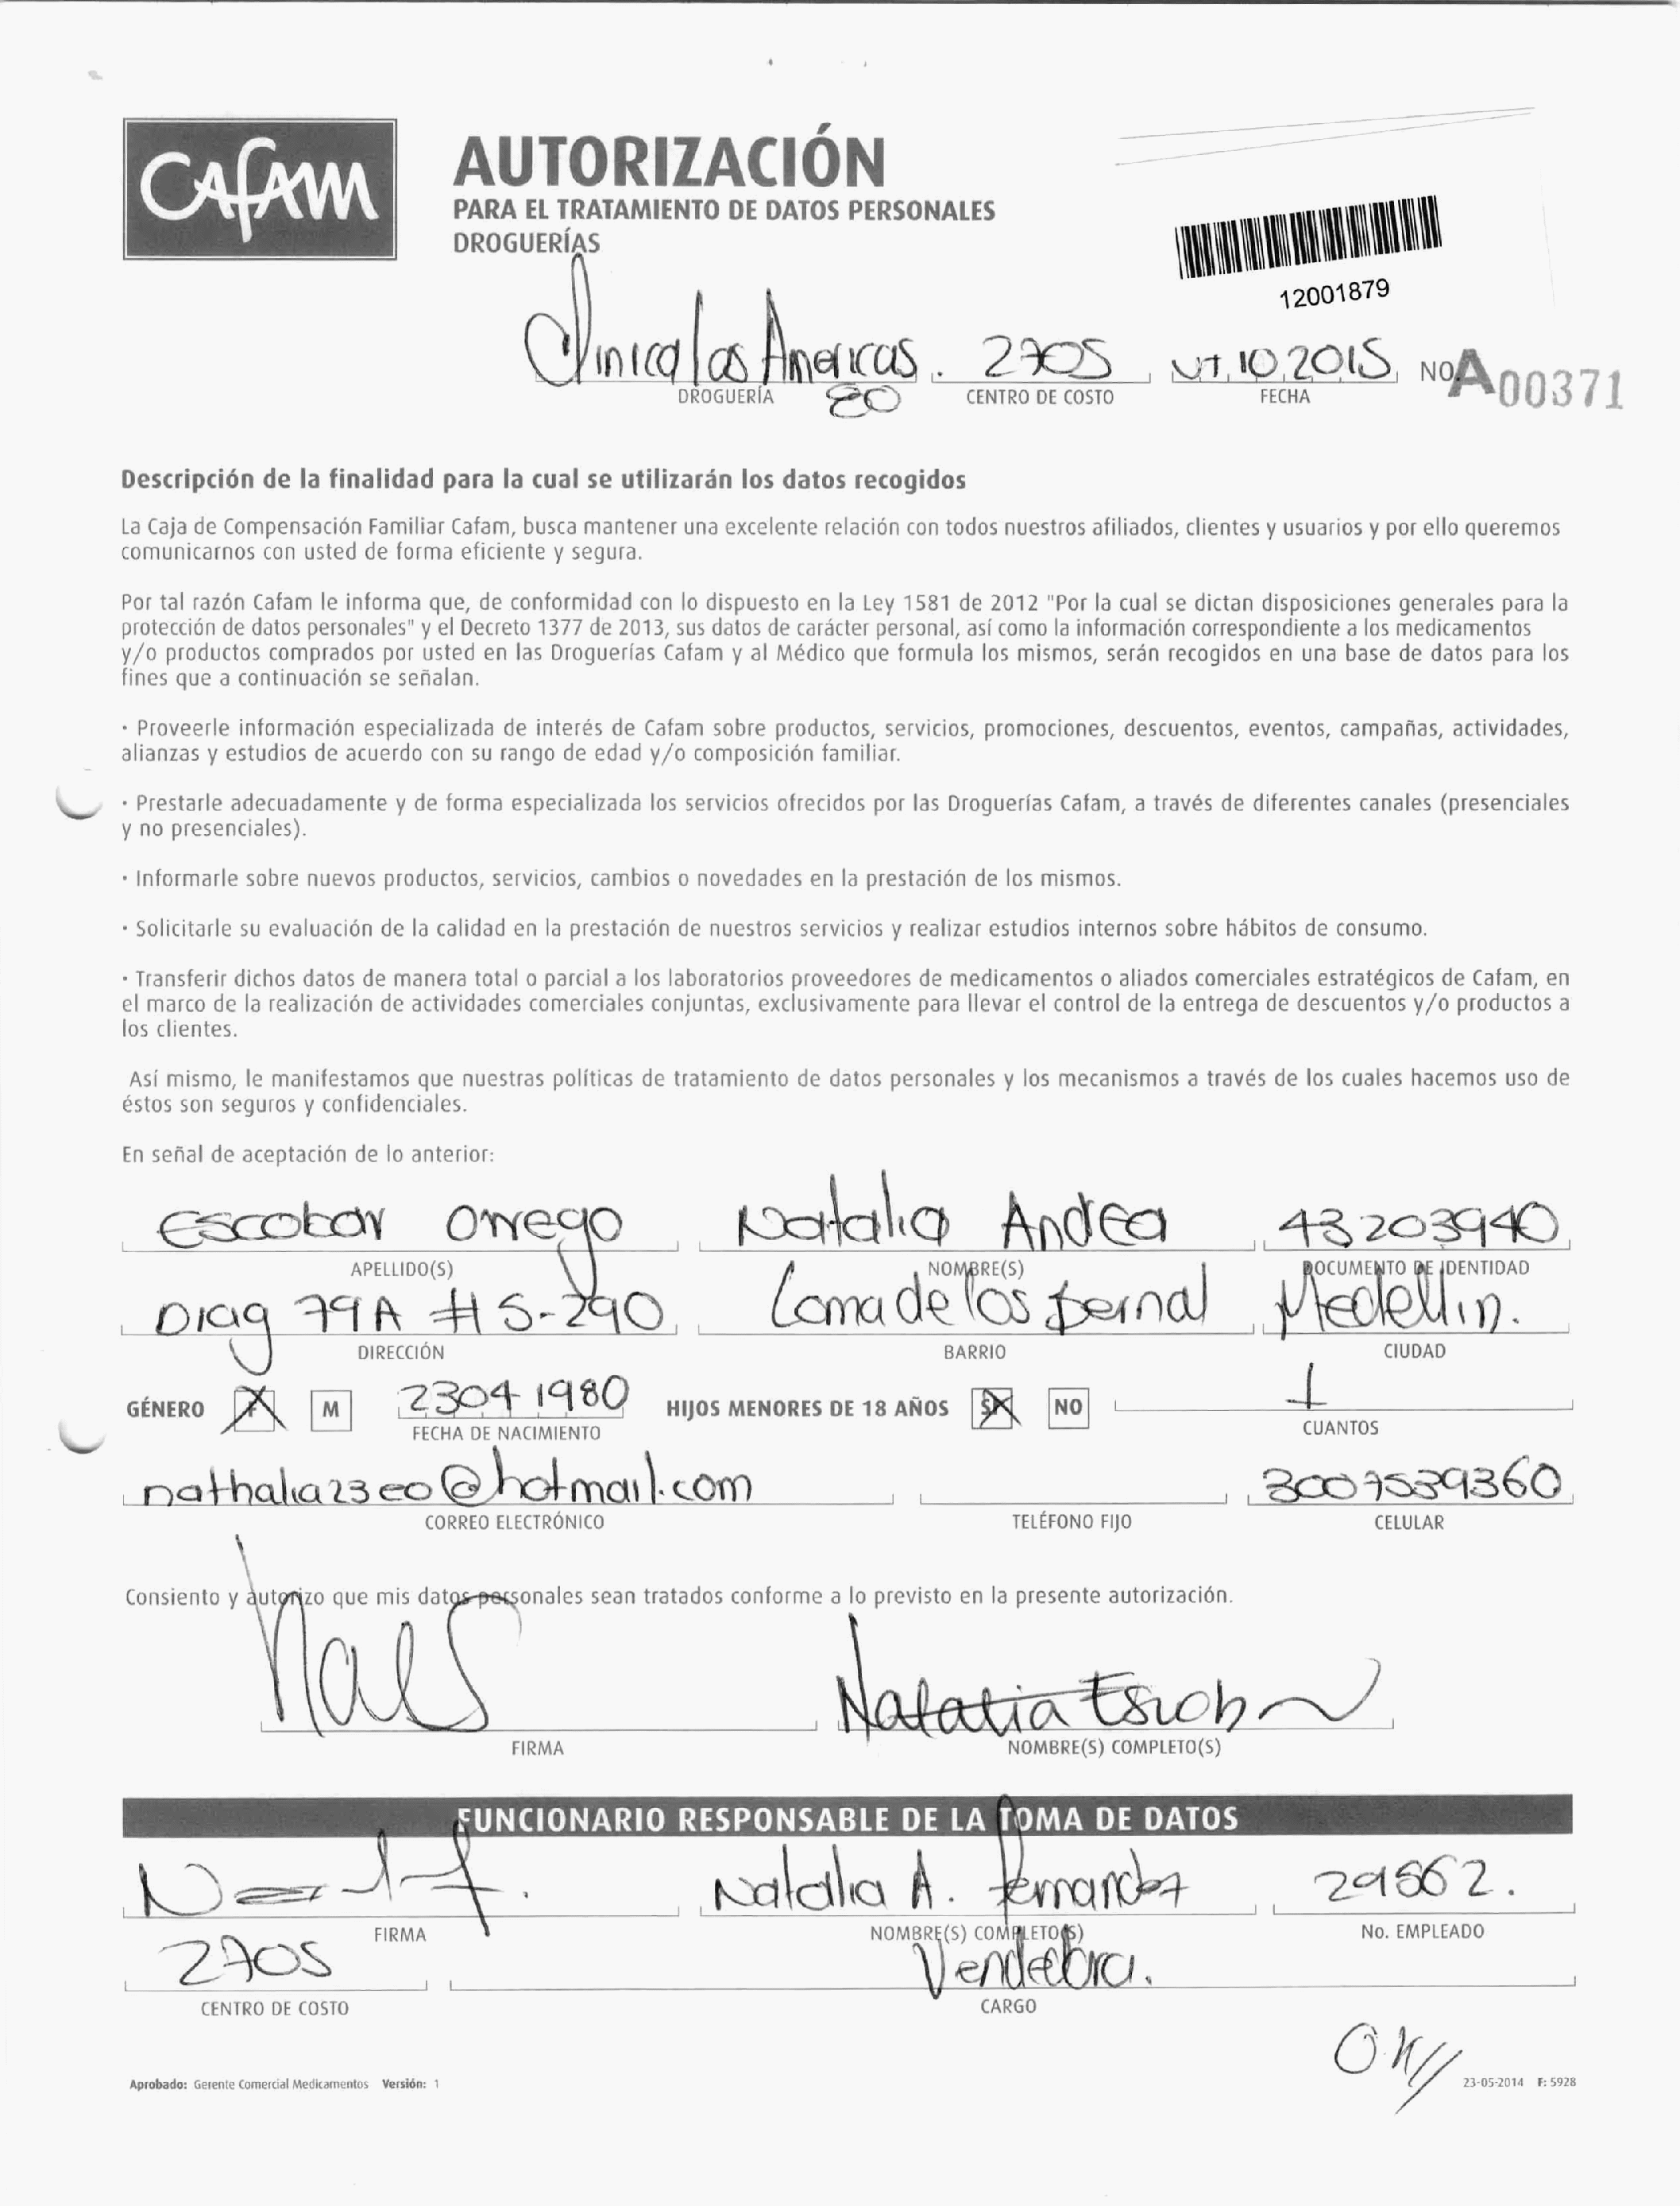 CAFAM
AUTORIZACIÓN
PARA EL TRATAMIENTO DE DATOS PERSONALES
DROGUERÍAS
12001879
Clinica las Americas. 2705 10 2015 NO. A00371
DROGUERÍA 80 CENTRO DE COSTO FECHA
Descripción de la finalidad para la cual se utilizarán los datos recogidos
La Caja de Compensación Familiar Cafam, busca mantener una excelente relación con todos nuestros afiliados, clientes y usuarios y por ello queremos
comunicarnos con usted de forma eficiente y segura.
Por tal razón Cafam le informa que, de conformidad con lo dispuesto en la Ley 1581 de 2012 "Por la cual se dictan disposiciones generales para la
protección de datos personales" y el Decreto 1377 de 2013, sus datos de carácter personal, así como la información correspondiente a los medicamentos
y/o productos comprados por usted en las Droguerías Cafam y al Médico que formula los mismos, serán recogidos en una base de datos para los
fines que a continuación se señalan.
· Proveerle información especializada de interés de Cafam sobre productos, servicios, promociones, descuentos, eventos, campañas, actividades,
alianzas y estudios de acuerdo con su rango de edad y/o composición familiar.
· Prestarle adecuadamente y de forma especializada los servicios ofrecidos por las Droguerías Cafam, a través de diferentes canales (presenciales
y no presenciales).
· Informarle sobre nuevos productos, servicios, cambios o novedades en la prestación de los mismos.
· Solicitarle su evaluación de la calidad en la prestación de nuestros servicios y realizar estudios internos sobre hábitos de consumo.
· Transferir dichos datos de manera total o parcial a los laboratorios proveedores de medicamentos o aliados comerciales estratégicos de Cafam, en
el marco de la realización de actividades comerciales conjuntas, exclusivamente para llevar el control de la entrega de descuentos y/o productos a
los clientes.
Así mismo, le manifestamos que nuestras políticas de tratamiento de datos personales y los mecanismos a través de los cuales hacemos uso de
éstos son seguros y confidenciales.
En señal de aceptación de lo anterior:
Escobar Orrego Natalia Andrea 43203940
APELLIDO(S) NOMBRE(S) DOCUMENTO DE IDENTIDAD
Diag 79A # 5-290 Loma de los Bernal Medellin.
DIRECCIÓN BARRIO CIUDAD
GÉNERO F M 23 04 1980 HIJOS MENORES DE 18 AÑOS SI NO 1
FECHA DE NACIMIENTO CUANTOS
nathalia23eo@hotmail.com 3007539360
CORREO ELECTRÓNICO TELÉFONO FIJO CELULAR
Consiento y autorizo que mis datos personales sean tratados conforme a lo previsto en la presente autorización.
Naes Natalia Escobar
FIRMA NOMBRE(S) COMPLETO(S)
FUNCIONARIO RESPONSABLE DE LA TOMA DE DATOS
Natalia A. Fernandez 29562.
FIRMA NOMBRE(S) COMPLETO(S) No. EMPLEADO
2705 Vendedora.
CENTRO DE COSTO CARGO
OK
Aprobado: Gerente Comercial Medicamentos Versión: 1 23-05-2014 F: 5928